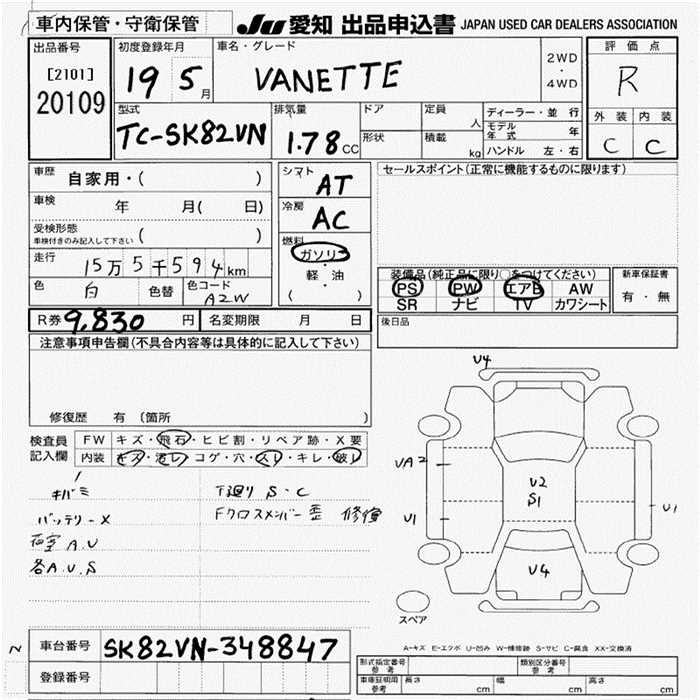 車内保管・守衛保管
JU 愛知 出品申込書 JAPAN USED CAR DEALERS ASSOCIATION
出品番号
[2101]
20109
初度登録年月
19 5月
車名・グレード
VANETTE
2WD
・
4WD
評価点
R
外装 内装
C C
型式
TC-SK82VN
排気量
1.78cc
ドア
形状
定員
人
積載
kg
ディーラー・並行
モデル年式 年
ハンドル 左・右
車歴
自家用・( )
車検
年 月( 日)
受検形態
車検付きのみ記入して下さい ( )
走行
15万5千594km
色 白 色替 色コード A2W
シフト
AT
冷房
AC
燃料
ガソリン
・
軽・油
( )
セールスポイント(正常に機能するものに限ります)
装備品(純正品に限り○をつけてください)
PS PW エアB AW
SR ナビ TV カワシート
新車保証書
有・無
R券 9,830円 名変期限 月 日
後日品
注意事項申告欄(不具合内容等は具体的に記入して下さい)
修復歴 有 (箇所 )
検査員記入欄
FW キズ・飛石・ヒビ割・リペア跡・X要
内装 キズ・汚レ・コゲ・穴・スレ・キレ・破レ
キバミ
バッテリーX
荷室A.U
各A.U.S
下廻りS・C
Fクロスメンバー歪 修復
U4
UA2
U1
U2
S1
U1
U4
スペア
A-キズ E-エクボ U-凹み W-補修跡 S-サビ C-腐食 XX-交換済
車台番号 SK82VN-348847
登録番号
型式指定番号
参考
類別区分番号
参考
車庫証明用
参考
長さ cm 幅 cm 高さ cm